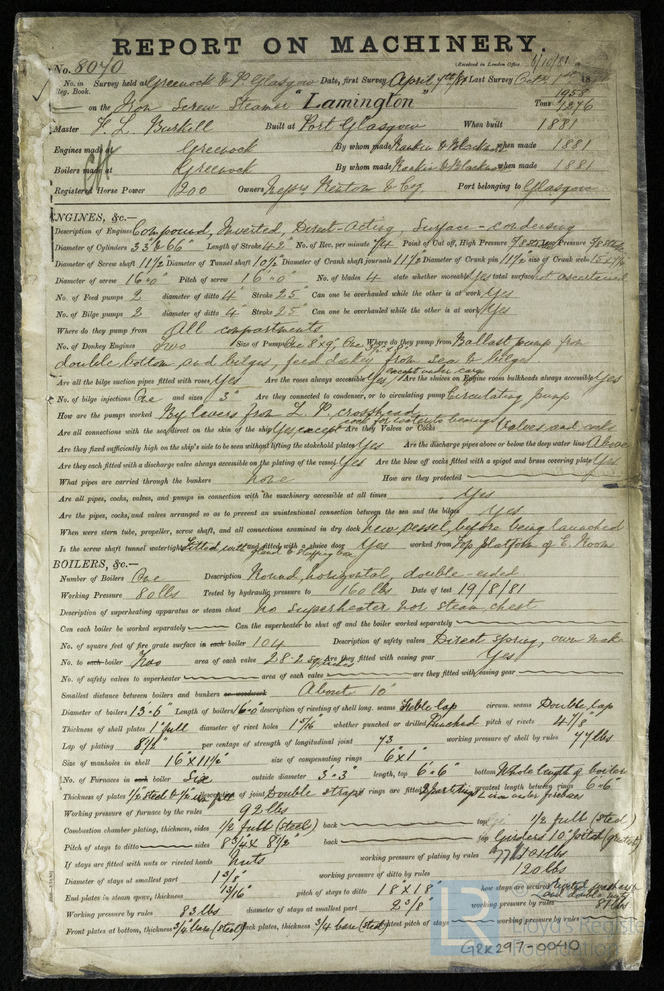 REPORT ON MACHINERY.
No. 8070 Received in London Office 1/10/81
No. in Survey held at Greenock & Pt Glasgow Date, first Survey April 7th/81 Last Survey Oct 1st 18
Reg. Book. 1958
on the Iron Screw Steamer "Lamington" Tons 1276
Master Built at Port Glasgow When built 1881
Engines made at Greenock By whom made Rankin & Blackmore when made 1881
Boilers made at Greenock By whom made Rankin & Blackmore when made 1881
Registered Horse Power 200 Owners Messrs Port belonging to Glasgow
ENGINES, &c.—
Description of Engines Compound, Inverted, Direct-Acting, Surface-condensing
Diameter of Cylinders 33" & 66" Length of Stroke 42" No. of Rev. per minute 74 Point of Cut off, High Pressure Low Pressure
Diameter of Screw shaft 11 1/2" Diameter of Tunnel shaft 10 1/2" Diameter of Crank shaft journals 11 1/2" Diameter of Crank pin 11 1/2" size of Crank webs
Diameter of screw 16'0" Pitch of screw 16'0" No. of blades 4 state whether moveable Yes total surface not ascertained
No. of Feed pumps 2 diameter of ditto 4" Stroke 25" Can one be overhauled while the other is at work Yes
No. of Bilge pumps 2 diameter of ditto 4" Stroke 25" Can one be overhauled while the other is at work Yes
Where do they pump from All compartments
No. of Donkey Engines Two Size of Pumps One 8"x9", One Where do they pump from Ballast pump from
double bottom and bilges, feed donkey from sea & bilges
Are all the bilge suction pipes fitted with roses Yes Are the roses always accessible Yes, except under cargo Are the sluices on Engine room bulkheads always accessible Yes
No. of bilge injections One and sizes 5" Are they connected to condenser, or to circulating pump Circulating pump
How are the pumps worked By levers from L. P. crosshead
Are all connections with the sea direct on the skin of the ship Yes, except cock for water to bearings Are they Valves or Cocks Valves and cocks
Are they fixed sufficiently high on the ship's side to be seen without lifting the stokehold plates Yes Are the discharge pipes above or below the deep water line Above
Are they each fitted with a discharge valve always accessible on the plating of the vessel Yes Are the blow off cocks fitted with a spigot and brass covering plate Yes
What pipes are carried through the bunkers none How are they protected
Are all pipes, cocks, valves, and pumps in connection with the machinery accessible at all times Yes
Are the pipes, cocks, and valves arranged so as to prevent an unintentional connection between the sea and the bilges Yes
When were stern tube, propeller, screw shaft, and all connections examined in dry dock new vessel, before being launched
Is the screw shaft tunnel watertight Fitted with gland & stuffing box and fitted with a sluice door Yes worked from Top platform of E. Room
BOILERS, &c.—
Number of Boilers One Description Round, horizontal, double-ended
Working Pressure 80 lbs Tested by hydraulic pressure to 160 lbs Date of test 19/8/81
Description of superheating apparatus or steam chest no superheater nor steam chest
Can each boiler be worked separately Can the superheater be shut off and the boiler worked separately
No. of square feet of fire grate surface in each boiler 104 Description of safety valves Direct spring, own make
No. to each boiler Two area of each valve 28.2 sq. inches Are they fitted with easing gear Yes
No. of safety valves to superheater area of each valve are they fitted with easing gear
Smallest distance between boilers and bunkers or woodwork About 10"
Diameter of boilers 13'.6" Length of boilers 16'.0" description of riveting of shell long. seams Treble lap circum. seams Double lap
Thickness of shell plates 1" full diameter of rivet holes 1 5/16" whether punched or drilled Punched pitch of rivets 4 7/8"
Lap of plating 8 1/2" per centage of strength of longitudinal joint 73 working pressure of shell by rules 77 lbs
Size of manholes in shell 16"x11 1/2" size of compensating rings 6"x1"
No. of Furnaces in each boiler Six outside diameter 3'.3" length, top 6'.6" bottom Whole length of boiler
Thickness of plates description of joint Double straps rings are fitted greatest length between rings 6'6"
Working pressure of furnace by the rules 92 lbs
Combustion chamber plating, thickness, sides 1/2 full (steel) back top 1/2 full (steel)
Pitch of stays to ditto sides 8 3/4 x 8 1/2" back top Girders 10" pitch (greatest)
If stays are fitted with nuts or riveted heads nuts working pressure of plating by rules 101 lbs
Diameter of stays at smallest part 1 3/8" working pressure of ditto by rules 120 lbs
End plates in steam space, thickness 13/16" pitch of stays to ditto 18"x18" how stays are secured
Working pressure by rules 83 lbs diameter of stays at smallest part 2 3/8" working pressure by rules 81 lbs
Front plates at bottom, thickness 3/4 bare (steel) Back plates, thickness 3/4 bare (steel) greatest pitch of stays working pressure by rules
LR
Lloyd's Register
Foundation
GRK297-0040